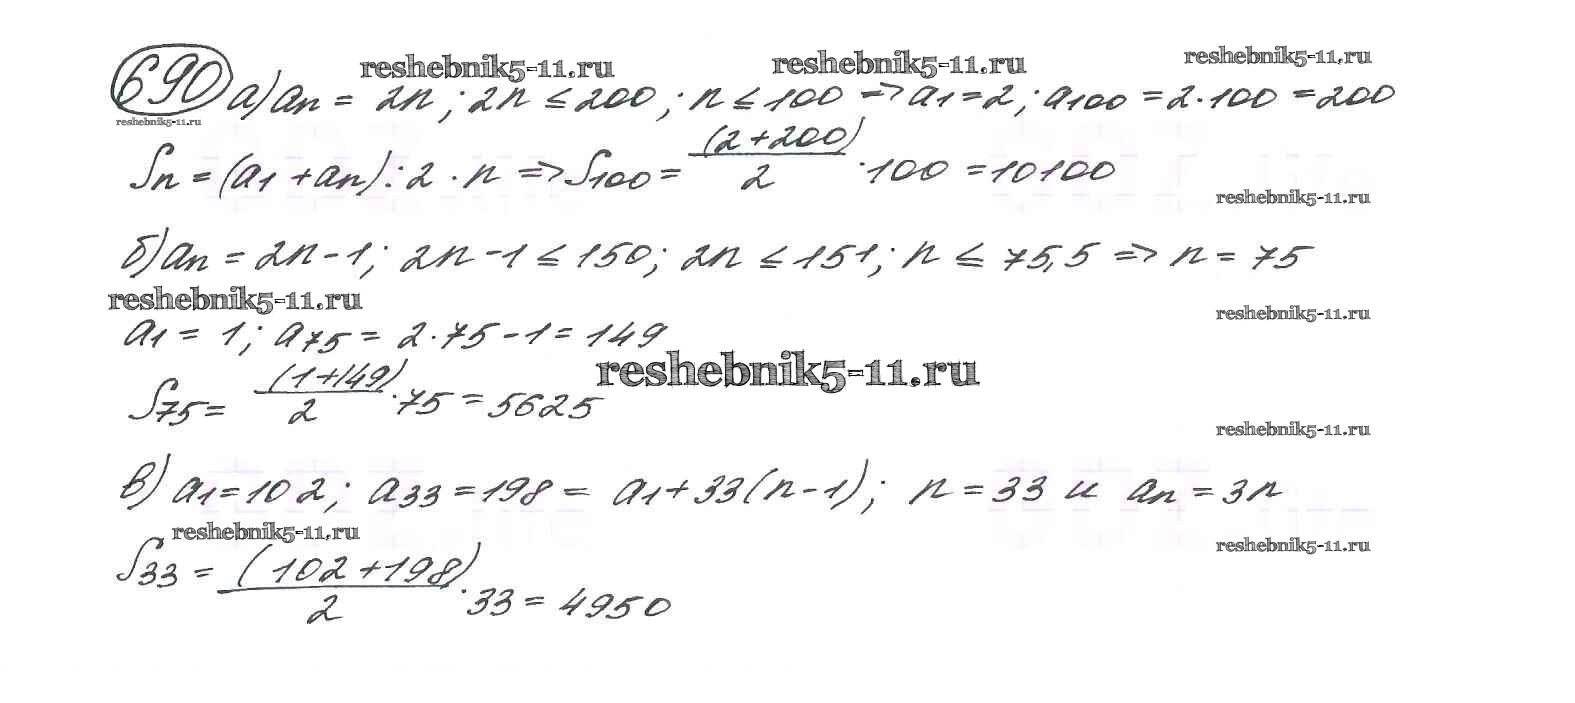 reshebnik5-11.ru reshebnik5-11.ru reshebnik5-11.ru
690 а) an = 2n; 2n ≤ 200; n ≤ 100 => a1 = 2; a100 = 2·100 = 200
reshebnik5-11.ru
Sn = (a1 + an) : 2 · n => S100 = (2+200)/2 · 100 = 10100
reshebnik5-11.ru
б) an = 2n - 1; 2n - 1 ≤ 150; 2n ≤ 151; n ≤ 75,5 => n = 75
reshebnik5-11.ru reshebnik5-11.ru
a1 = 1; a75 = 2·75 - 1 = 149
reshebnik5-11.ru
S75 = (1+149)/2 · 75 = 5625
reshebnik5-11.ru
в) a1 = 102; a33 = 198 = a1 + 33(n-1); n = 33 и an = 3n
reshebnik5-11.ru reshebnik5-11.ru
S33 = (102+198)/2 · 33 = 4950